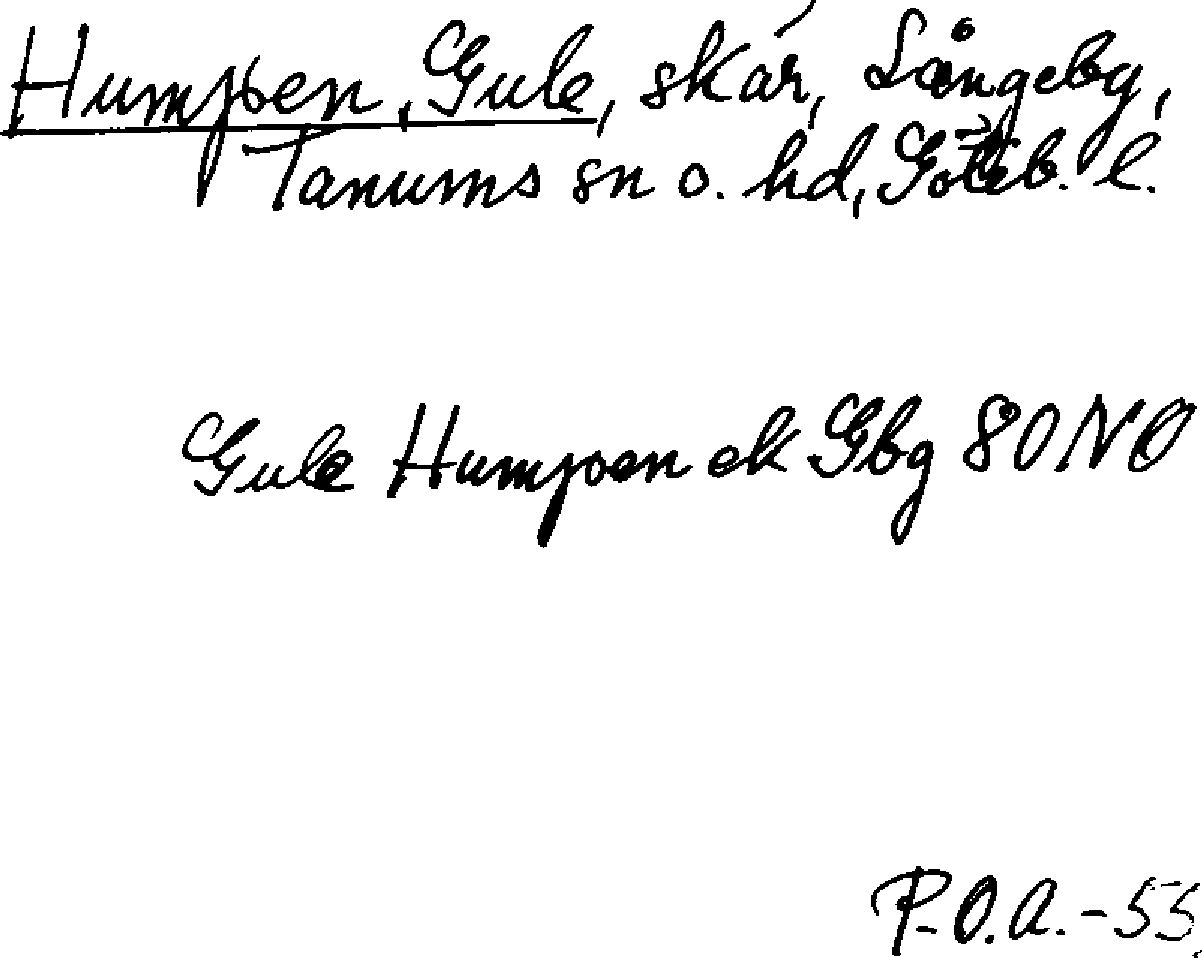 Humpen, Gule, skär, Långeby,
Tanums sn o. hd, Göteb. l.
Gule Humpen ek Gbg 80 NO
P.O.A.-55.